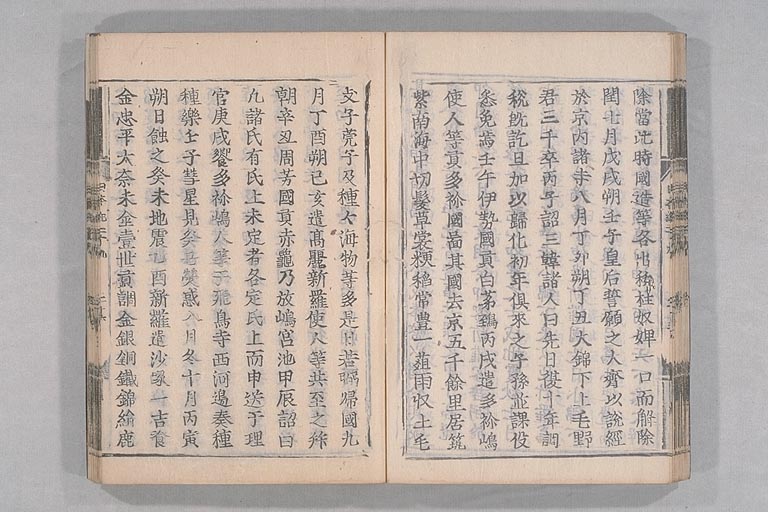 除當此時國造等各出秡柱奴婢一口而解除
閏七月戊戌朔壬子皇后誓願之大齊以說經
於京内諸寺八月丁卯朔丁丑大錦下上毛野
君三千卒丙子詔三韓諸人曰先日復十年調
稅既訖且加以歸化初年俱來之子孫並課役
悉免焉壬午伊勢國貢白茅鵄丙戌遣多祢嶋
使人等貢多祢國啚其國去京五千餘里居筑
紫南海中切髮草裳粳稻常豊一葅兩収土毛
支子莞子及種々海物等多是日若弼歸國九
月丁酉朔己亥遣高麗新羅使人等共至之拜
朝辛丑周芳國貢赤龜乃放嶋宮池甲辰詔曰
凡諸氏有氏上未定者各定氏上而申送于理
官庚戌饗多祢嶋人等于飛鳥寺西河邊奏種
種樂壬子彗星見癸丑熒惑入月冬十月丙寅
朔日蝕之癸未地震乙酉新羅遣沙㖨一吉飡
金忠平大奈末金壹世貢調金銀銅鐵錦絹鹿